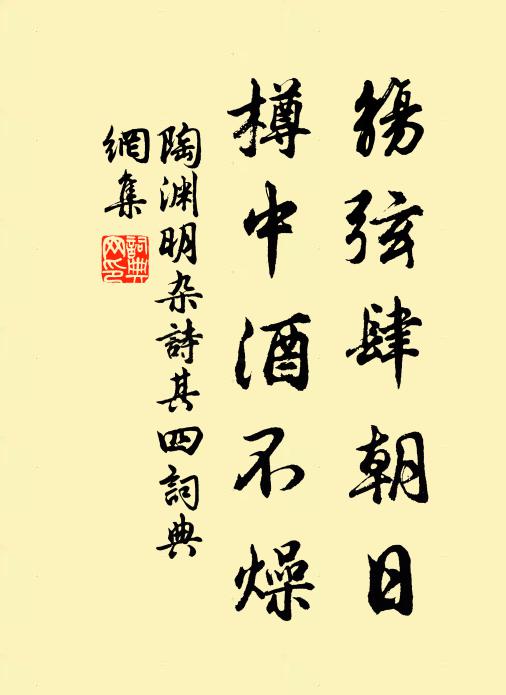 觴弦肆朝日
樽中酒不燥
陶淵明杂詩其四詞典
網集
詞典
网印